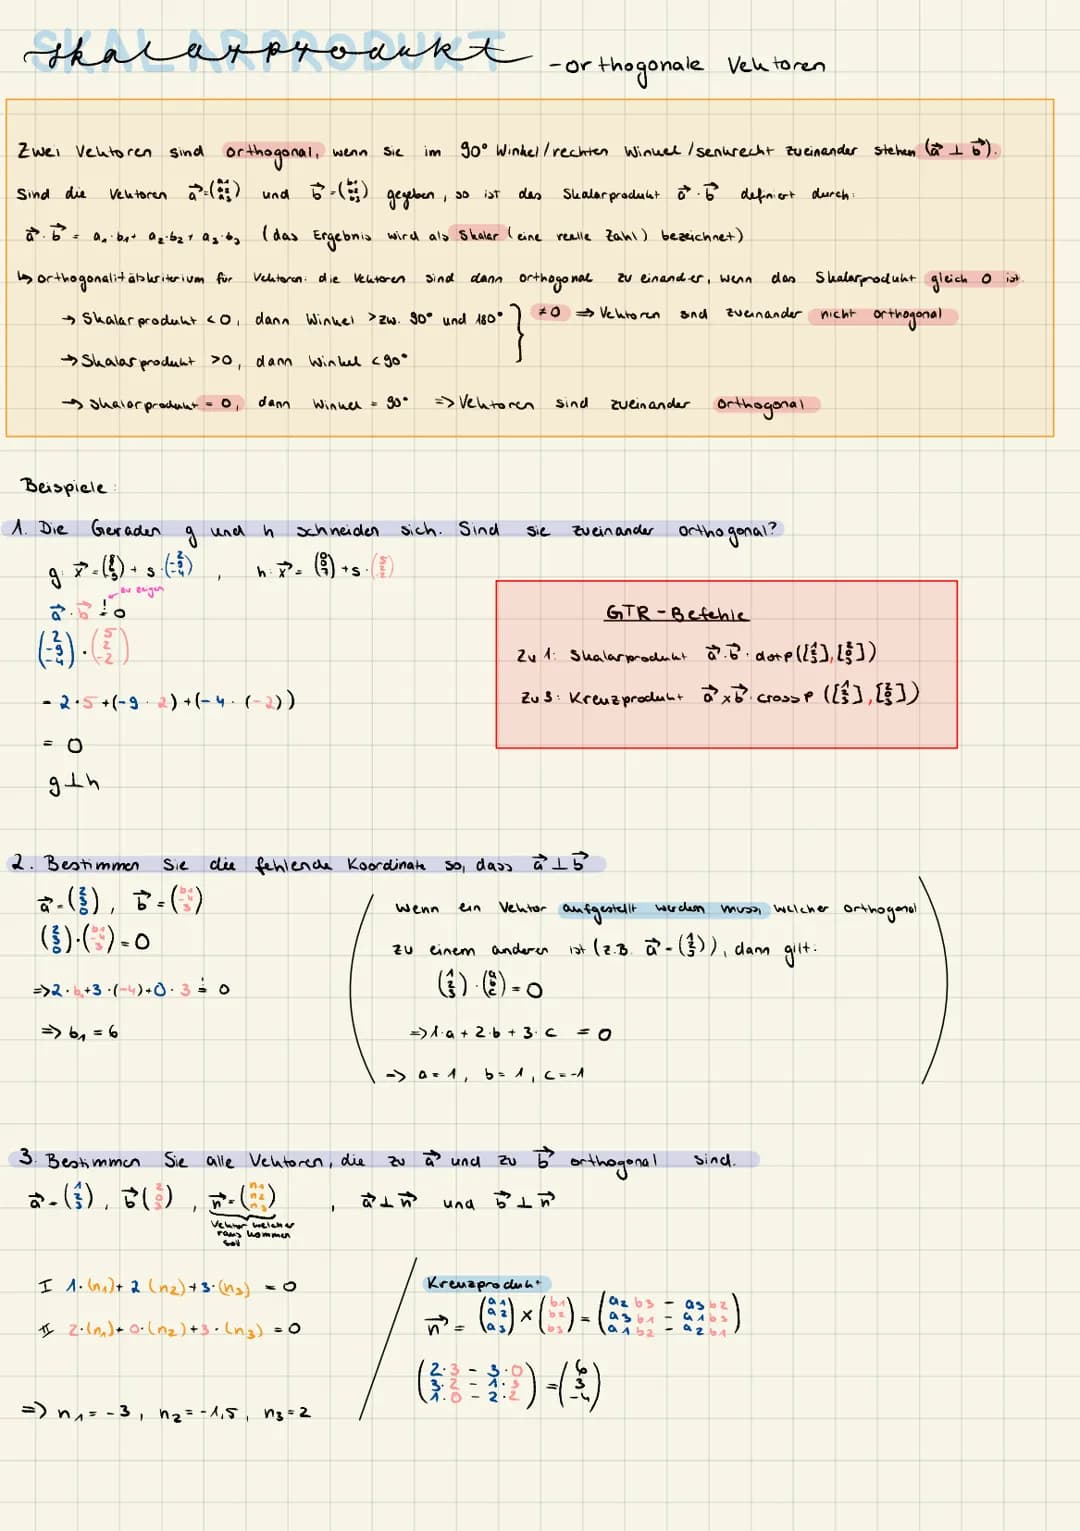 SKALARPRODUKT
Skalarprodukt - orthogonale Vektoren
Zwei Vektoren sind orthogonal, wenn sie im 90° Winkel/rechten Winkel/senkrecht zueinander stehen (a⃗ ⊥ b⃗).
Sind die Vektoren a⃗=(a1 a2 a3) und b⃗=(b1 b2 b3) gegeben, so ist das Skalarprodukt a⃗·b⃗ definiert durch:
a⃗·b⃗ = a₁·b₁+ a₂·b₂+ a₃·b₃ (das Ergebnis wird als Skalar (eine reelle Zahl) bezeichnet)
↳ orthogonalitätskriterium für Vektoren: die Vektoren sind dann orthogonal zu einander, wenn das Skalarprodukt gleich 0 ist.
→ Skalarprodukt <0, dann Winkel >zw. 90° und 180° } ≠0 ⇒ Vektoren sind zueinander nicht orthogonal
→ Skalarprodukt >0, dann Winkel <90°
→ Skalarprodukt = 0, dann Winkel = 90° => Vektoren sind zueinander orthogonal
Beispiele:
1. Die Geraden g und h schneiden sich. Sind sie zueinander orthogonal?
zu zeigen
a⃗·b⃗ != 0
(2 -9 -4)·(5 2 -2)
= 2·5+(-9·2)+(-4·(-2))
= 0
g⊥h
GTR-Befehle
Zu 1: Skalarprodukt a⃗·b⃗: dotp([1 2 3],[2 0 3])
Zu 3: Kreuzprodukt a⃗×b⃗: crossP ([1 2 3],[2 0 3])
2. Bestimmen Sie die fehlende Koordinate so, dass a⃗⊥b⃗
a⃗=(2 3 0), b⃗=(b1 -4 3)
(2 3 0)·(b1 -4 3)=0
=>2·b₁+3·(-4)+0·3 != 0
=> b₁ = 6
Wenn ein Vektor aufgestellt werden muss, welcher orthogonal
zu einem anderen ist (z.B. a⃗=(1 2 3)), dann gilt:
(1 2 3)·(a b c)=0
=>1·a+2·b+3·c = 0
=> a=1, b=1, c=-1
3. Bestimmen Sie alle Vektoren, die zu a⃗ und zu b⃗ orthogonal sind.
a⃗=(1 2 3), b⃗(2 0 3), n⃗=(n1 n2 n3), a⃗⊥n⃗ und b⃗⊥n⃗
Vektor welcher
raus kommen
soll
I 1·(n₁)+2(n₂)+3·(n₃) = 0
II 2·(n₁)+0·(n₂)+3·(n₃) = 0
=> n₁=-3, n₂=-1,5, n₃=2
Kreuzprodukt
n⃗ = (a1 a2 a3)×(b1 b2 b3)=(a2b3 - a3b2 a3b1 - a1b3 a1b2 - a2b1)
(2·3 - 3·0 3·2 - 1·3 1·0 - 2·2)=(6 3 -4)